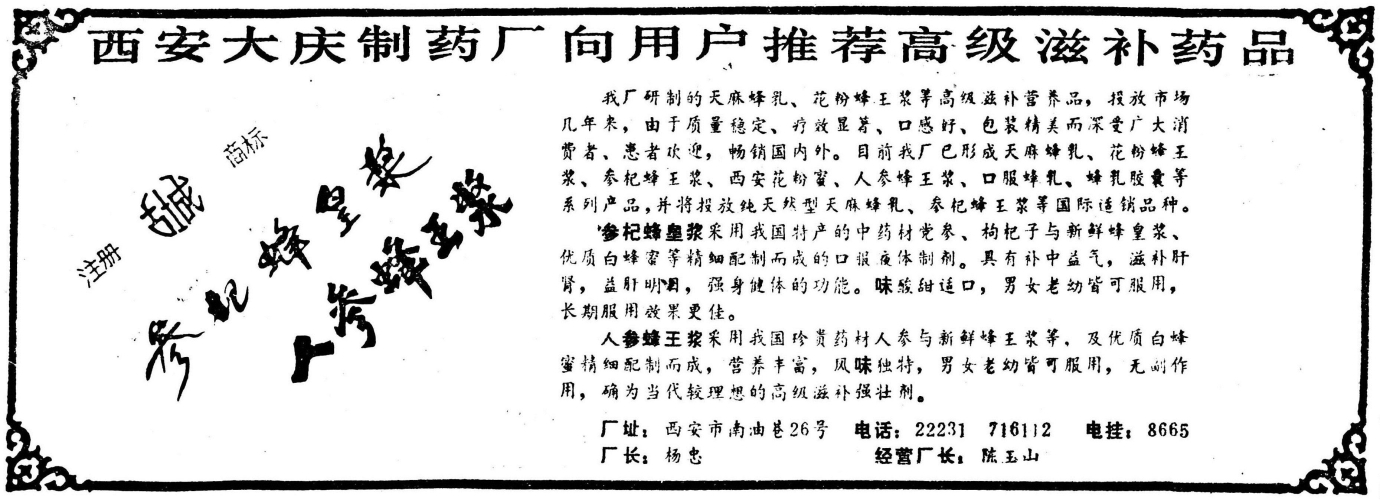 西安大庆制药厂向用户推荐高级滋补药品
注册
商标
参杞蜂皇浆
人参蜂王浆
我厂研制的天麻蜂乳、花粉蜂王浆等高级滋补营养品，投放市场
几年来，由于质量稳定、疗效显著、口感好、包装精美而深受广大消
费者、患者欢迎，畅销国内外。目前我厂已形成天麻蜂乳、花粉蜂王
浆、参杞蜂王浆、西安花粉蜜、人参蜂王浆、口服蜂乳、蜂乳胶囊等
系列产品，并将投放纯天然型天麻蜂乳、参杞蜂王浆等国际适销品种。
参杞蜂皇浆采用我国特产的中药材党参、枸杞子与新鲜蜂皇浆、
优质白蜂蜜等精细配制而成的口服液体制剂。具有补中益气，滋补肝
肾，益肝明目，强身健体的功能。味酸甜适口，男女老幼皆可服用，
长期服用效果更佳。
人参蜂王浆采用我国珍贵药材人参与新鲜蜂王浆等，及优质白蜂
蜜精细配制而成，营养丰富，风味独特，男女老幼皆可服用，无副作
用，确为当代较理想的高级滋补强壮剂。
厂址：西安市南油巷26号 电话：22231 716112 电挂：8665
厂长：杨忠 经营厂长：陈玉山